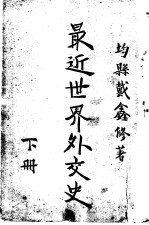 均縣戴鑫修著
最近世界外交史
下冊